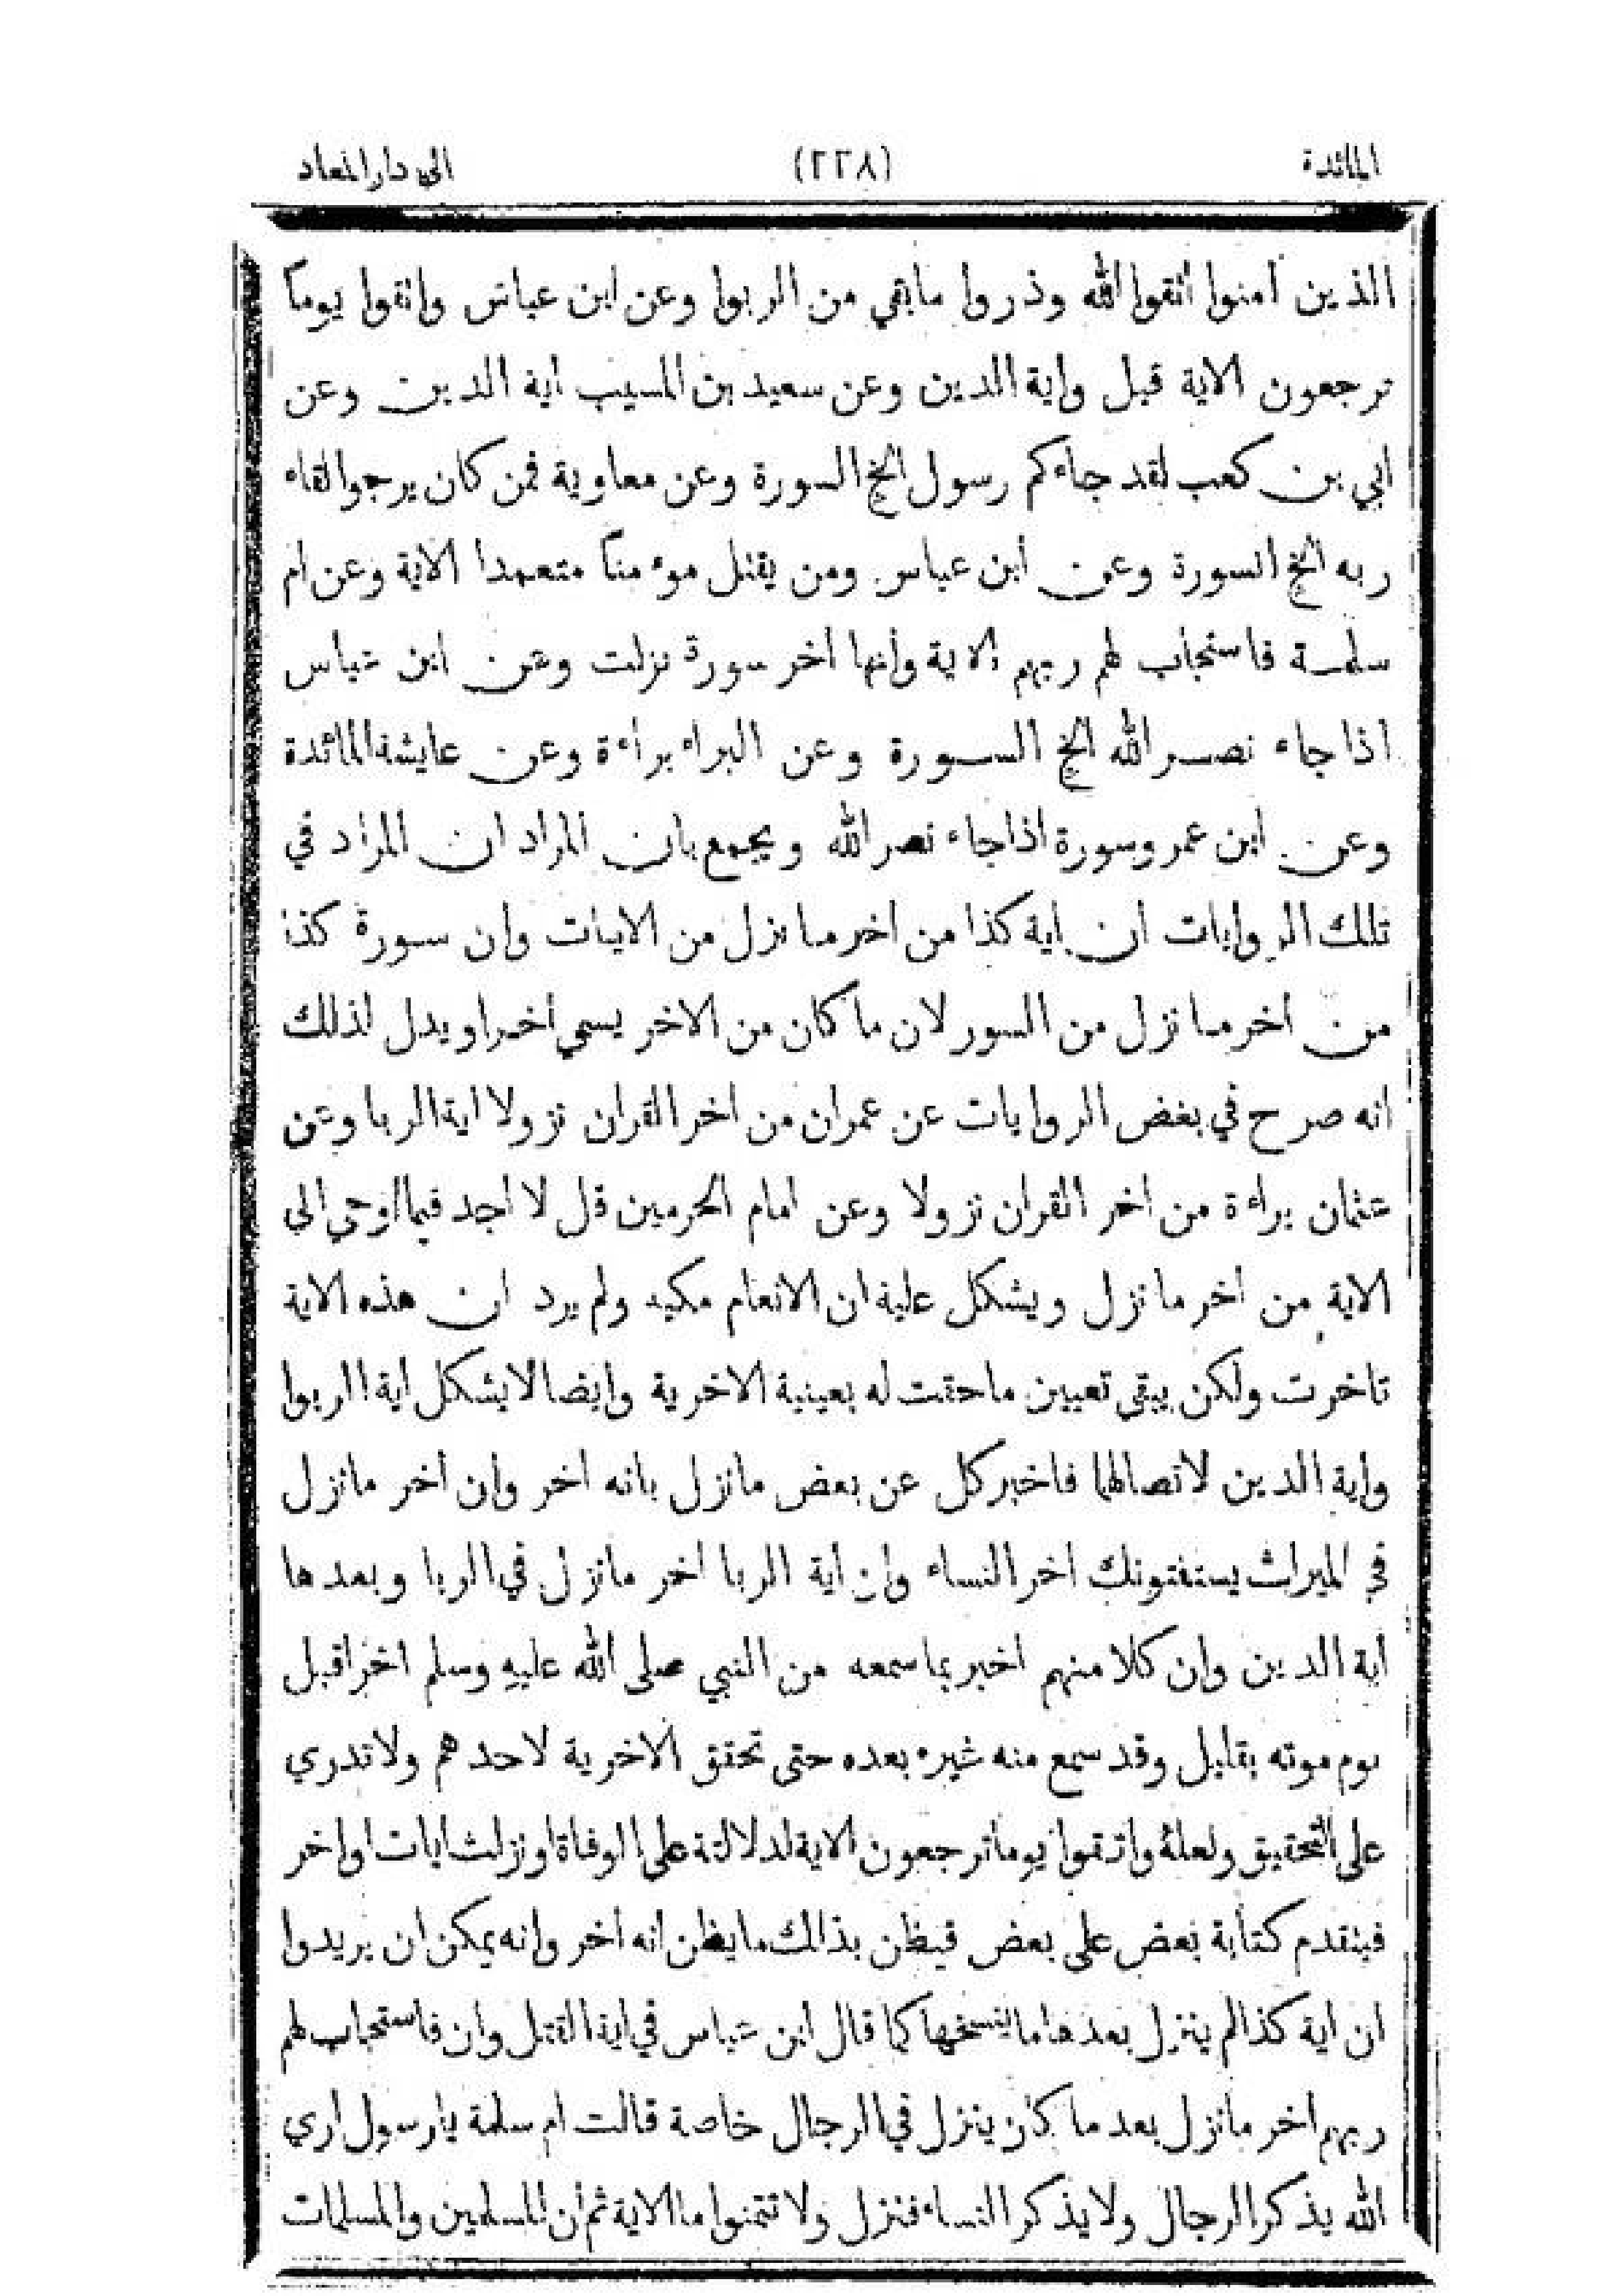 المائدة (٢٢٨) الى دار المعاد
الذين آمنوا اتقوا الله وذروا ما بقي من الربوا وعن ابن عباس واتقوا يوماً
ترجعون الاية قبل واية الدين وعن سعيد بن المسيب اية الدين وعن
ابي بن كعب لقد جاءكم رسول الخ السورة وعن معاوية فمن كان يرجوا لقاء
ربه الخ السورة وعن ابن عباس ومن يقتل موءمناً متعمدا الاية وعن ام
سلمة فاستجاب لهم ربهم الاية وانها اخر سورة نزلت وعن ابن عباس
اذا جاء نصر الله الخ السورة وعن البراء براءة وعن عايشة المائدة
وعن ابن عمر وسورة اذا جاء نصر الله ويجمع بان المراد ان المراد في
تلك الروايات ان اية كذا من اخر ما نزل من الايات وان سورة كذا
من اخر ما نزل من السور لان ما كان من الاخر يسمي أخرا ويدل لذلك
انه صرح في بعض الروايات عن عمران من اخر القران نزولا اية الربا وعن
عثمان براءة من اخر القران نزولا وعن امام الحرمين قل لا اجد فيما اوحى الى
الاية من اخر ما نزل ويشكل علية ان الانعام مكيه ولم يرد ان هذه الاية
تاخرت ولكن يبقى تعيين ما حقت له بعينية الاخرية وايضا لا يشكل اية الربوا
واية الدين لاتصالهما فاخبر كل عن بعض ما نزل بانه اخر وان اخر ما نزل
في الميراث يستفتونك اخر النساء وان اية الربا اخر ما نزل في الربا وبعدها
أية الدين وان كلا منهم اخبر بما سمعه من النبي صلى الله عليه وسلم اخرا قبل
يوم موته بقليل وقد سمع منه غيره بعده حتى تحقق الاخرية لاحدهم ولا تدري
على التحقيق ولعله واتقوا يوما ترجعون الاية لدلالتة على الوفاة او نزلت ايات اواخر
فيتقدم كتابة بعض على بعض فيظن بذالك ما يظن انه اخر وانه يمكن ان يريدوا
ان اية كذا لم ينزل بعدها ما ينسخها كما قال ابن عباس في اية القتل وان فاستجاب لهم
ربهم اخر ما نزل بعد ما كان ينزل في الرجال خاصة قالت ام سلمة يارسول اري
الله يذكر الرجال ولا يذكر النساء فنزل ولا تتمنوا ما الاية ثم أن المسلمين والمسلمات